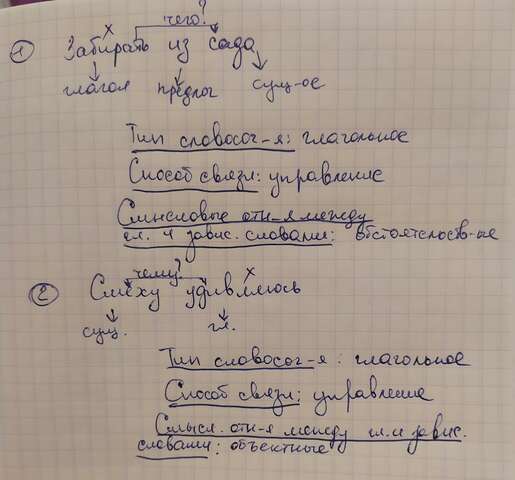 чего?
х
1 Забирать из сада
глагол предлог сущ-ое
Тип словосоч-я: глагольное
Способ связи: управление
Смысловые отн-я между
гл. и завис. словами: обстоятельств-ые
чему?
х
2 Смеху удивляюсь
сущ. гл.
Тип словосоч-я: глагольное
Способ связи: управление
Смысл. отн-я между гл. и завис.
словами: объектные